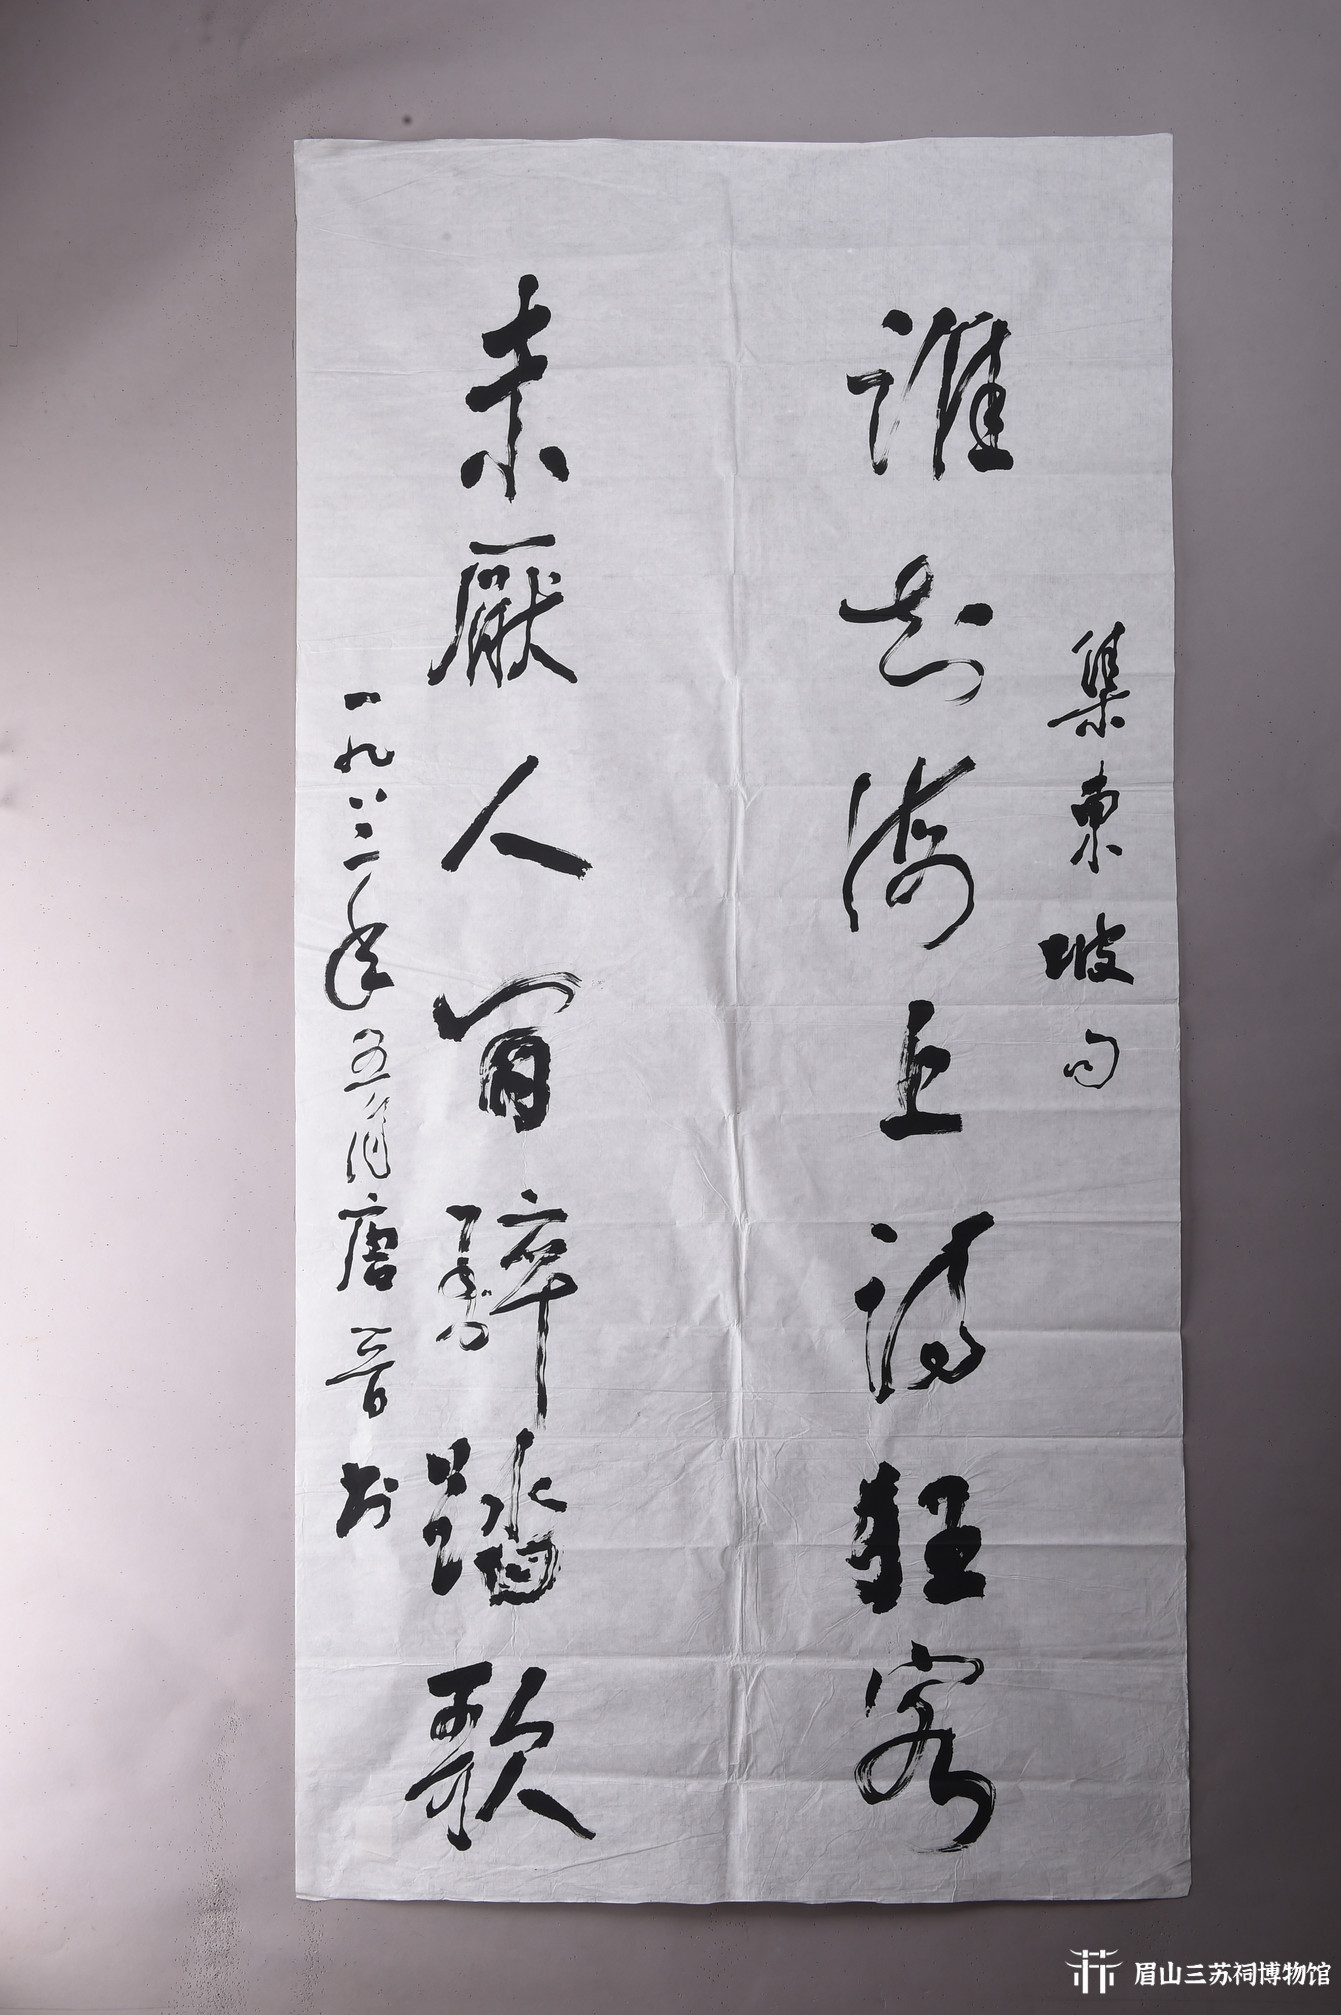 集東坡句
誰知海上詩狂客
未厭人間醉踏歌
一九八二年五月唐一音书
眉山三苏祠博物馆